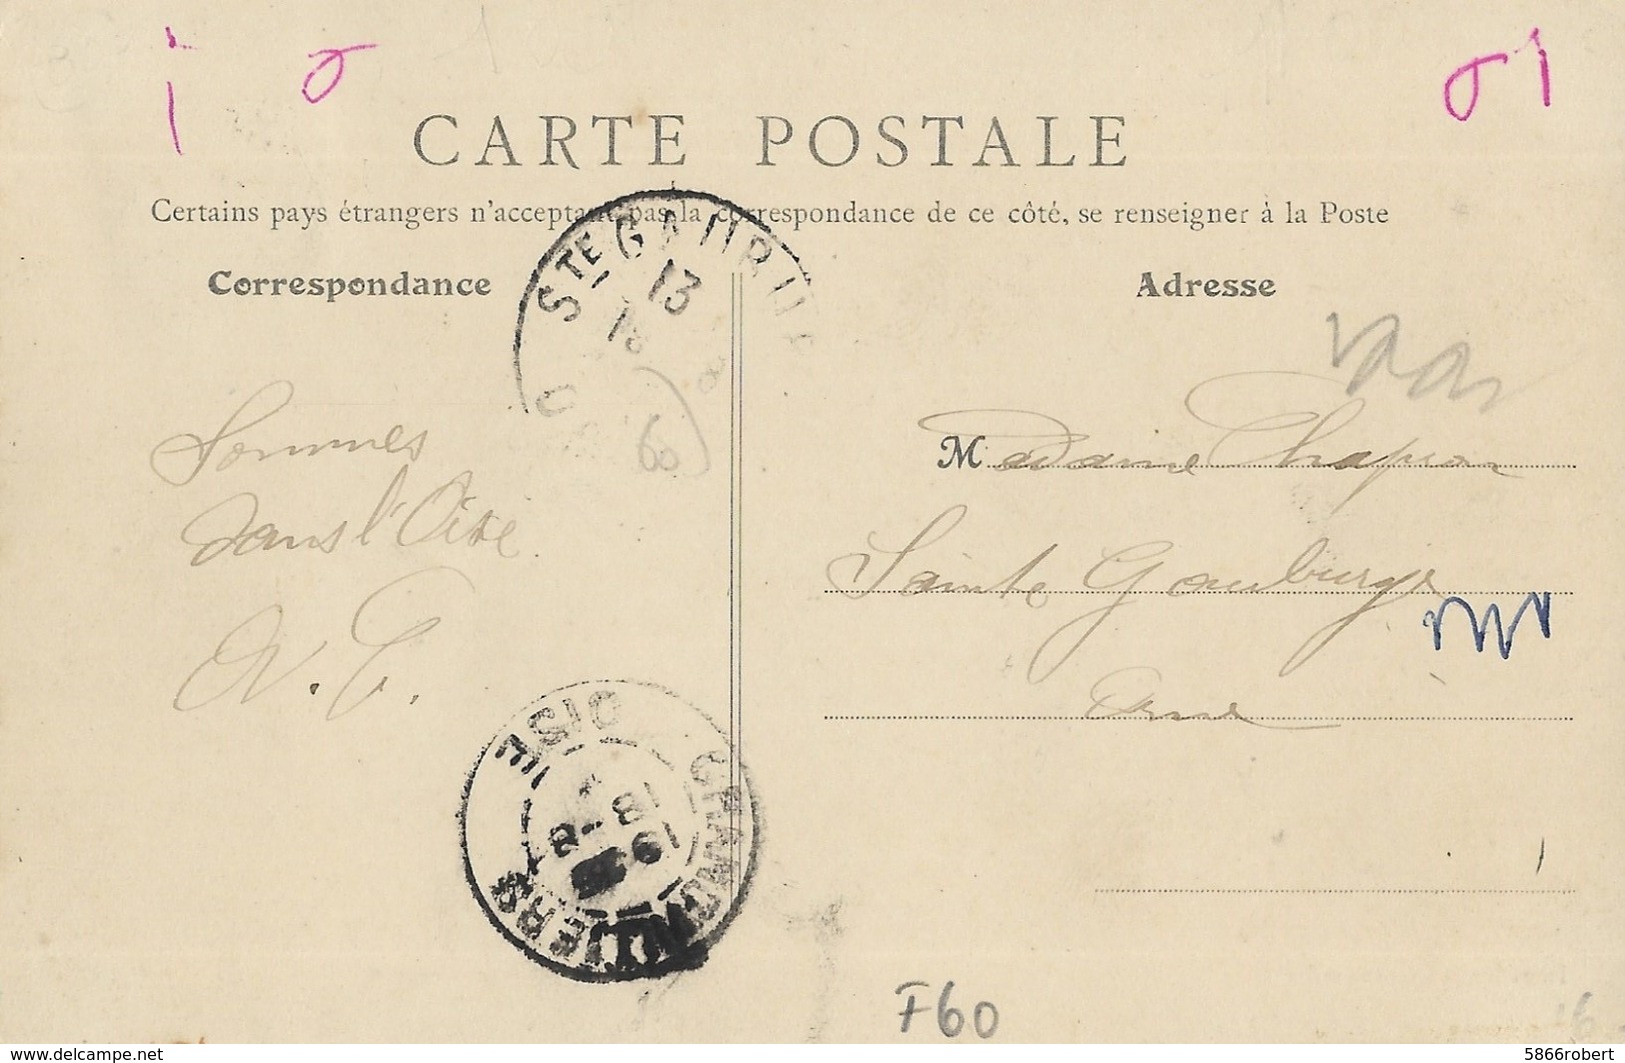 CARTE POSTALE
Certains pays étrangers n'acceptant pas la correspondance de ce côté, se renseigner à la Poste
Correspondance
Adresse
STE GAUBURGE
13
60
Sommes
dans l'Oise
M Madame Chapron
Sainte Gauburge
Orne
OISE
CHAMGNY
18 - 8
F60
www.delcampe.net
5866robert